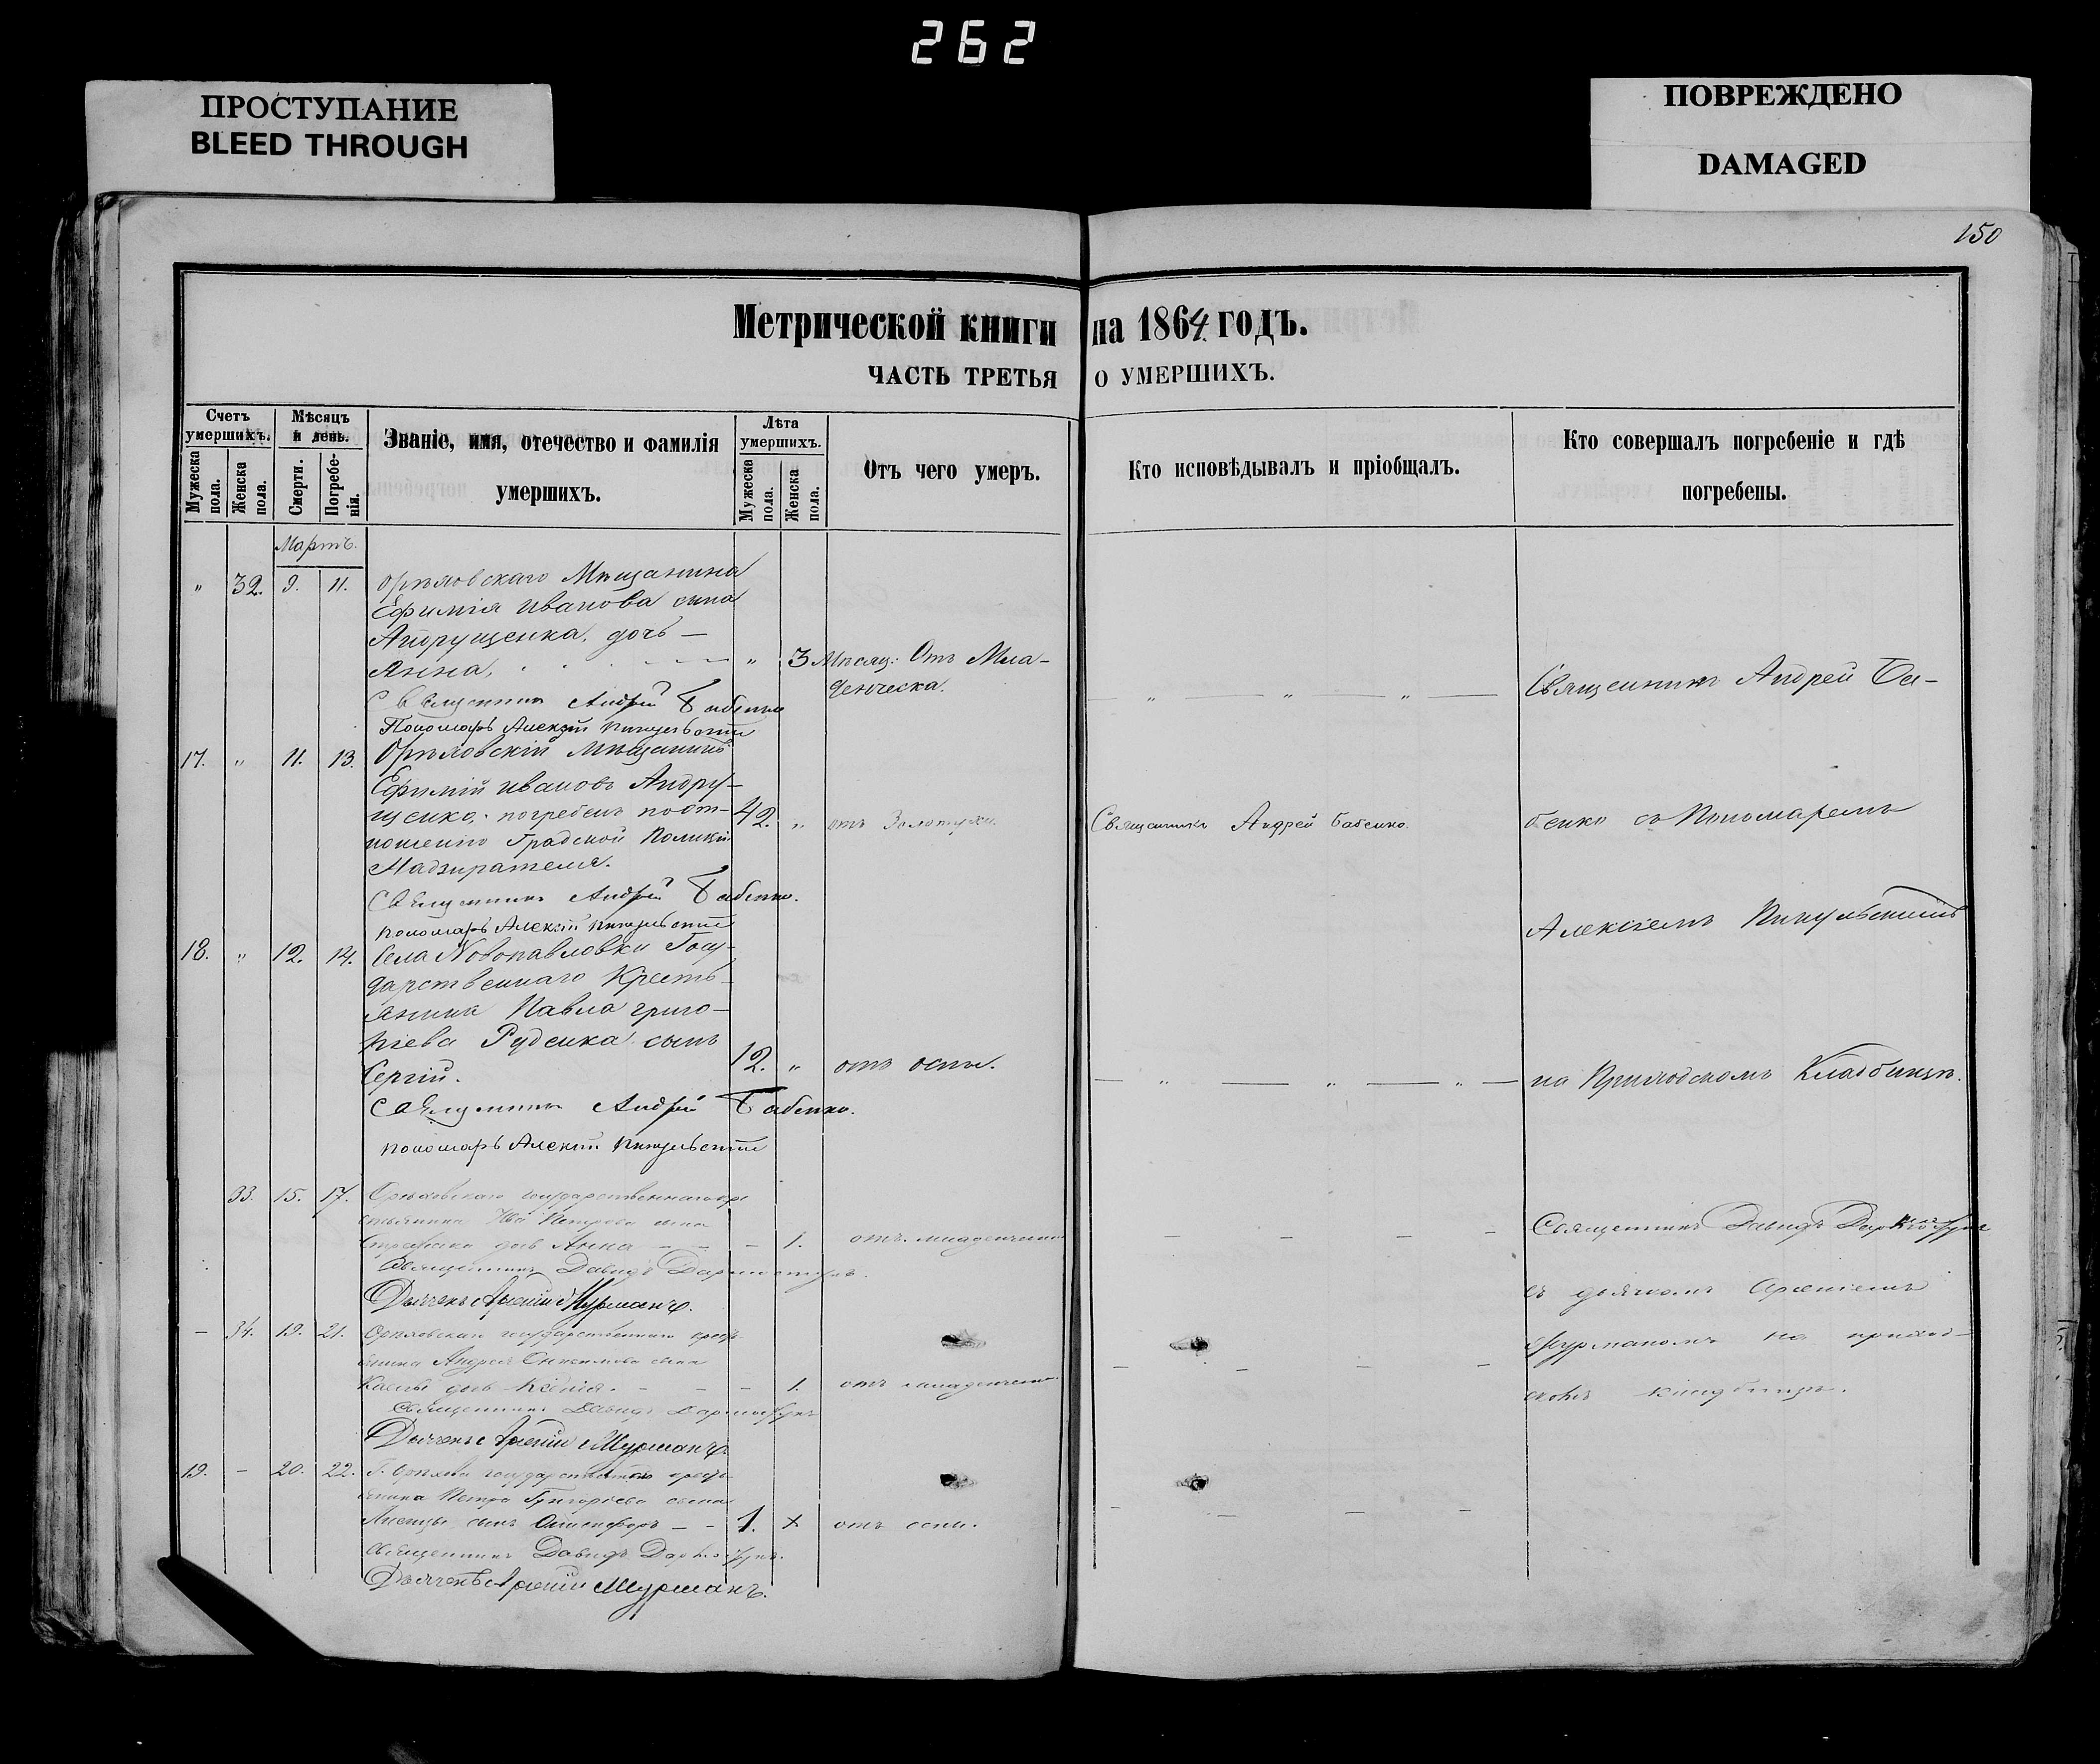 262
ПРОСТУПАНИЕ
BLEED THROUGH
ПОВРЕЖДЕНО
DAMAGED
150
Метрической книги на 1864 годъ.
ЧАСТЬ ТРЕТЬЯ О УМЕРШИХЪ.
Счетъ умершихъ.
Мужеска пола.
Женска пола.
Мѣсяцъ и день.
Смерти.
Погребенія.
Званіе, имя, отечество и фамилія умершихъ.
Лѣта умершихъ.
Мужеска пола.
Женска пола.
Отъ чего умеръ.
Кто исповѣдывалъ и пріобщалъ.
Кто совершалъ погребеніе и гдѣ погребены.
Мартъ.
" 32. 9. 11. Орѣховскаго Мѣщанина
Ефимія Иванова сына
Андрущенка, дочь —
Анна, " 3 Мѣсяц: Отъ Мла-
денческа.
Священникъ Андрей Бабенко
Пономарь Алексій Пикульскій
17. " 11. 13. Орѣховскій Мѣщанинъ
Ефимій Ивановъ Андру-
щенко, погребенъ по от-
ношенію Градской Полиціи 42. " отъ Золотухи. Священникъ Андрей Бабенко.
Надзирателя.
Священникъ Андрей Бабенко.
Пономарь Алексій Пикульскій
18. " 12. 14. Села Новопавловки Госу-
дарственнаго Кресть-
янина Павла Григо-
ріева Руденка сынъ
Сергій. 12. " отъ оспы.
Священникъ Андрей Бабенко.
Пономарь Алексій Пикульскій
Священникъ Андрей Ба-
бенко съ Пономаремъ
Алексіемъ Пикульскимъ
на Приходскомъ Кладбищѣ.
33. 15. 17. Орѣховскаго государственнаго кре
стьянина Петрова сына
дочь Анна — — — 1. отъ младенческой
Священникъ Давидъ
Дьячекъ Арсеній Мурманъ.
— 34. 19. 21. Орѣховскаго государственнаго крест
янина Андрея сына
дочь Ксенія. — — — 1. отъ младенческой
Священникъ Давидъ
Дьячекъ Арсеній Мурманъ.
19. — 20. 22. Г. Орѣхова государственнаго крест
янина Петра Григоріева сына
сынъ — — 1. отъ оспы.
Священникъ Давидъ
Дьячекъ Арсеній Мурманъ.
Священникъ Давидъ
съ дьячкомъ Арсеніемъ
Мурманомъ на приход-
скомъ кладбищѣ.